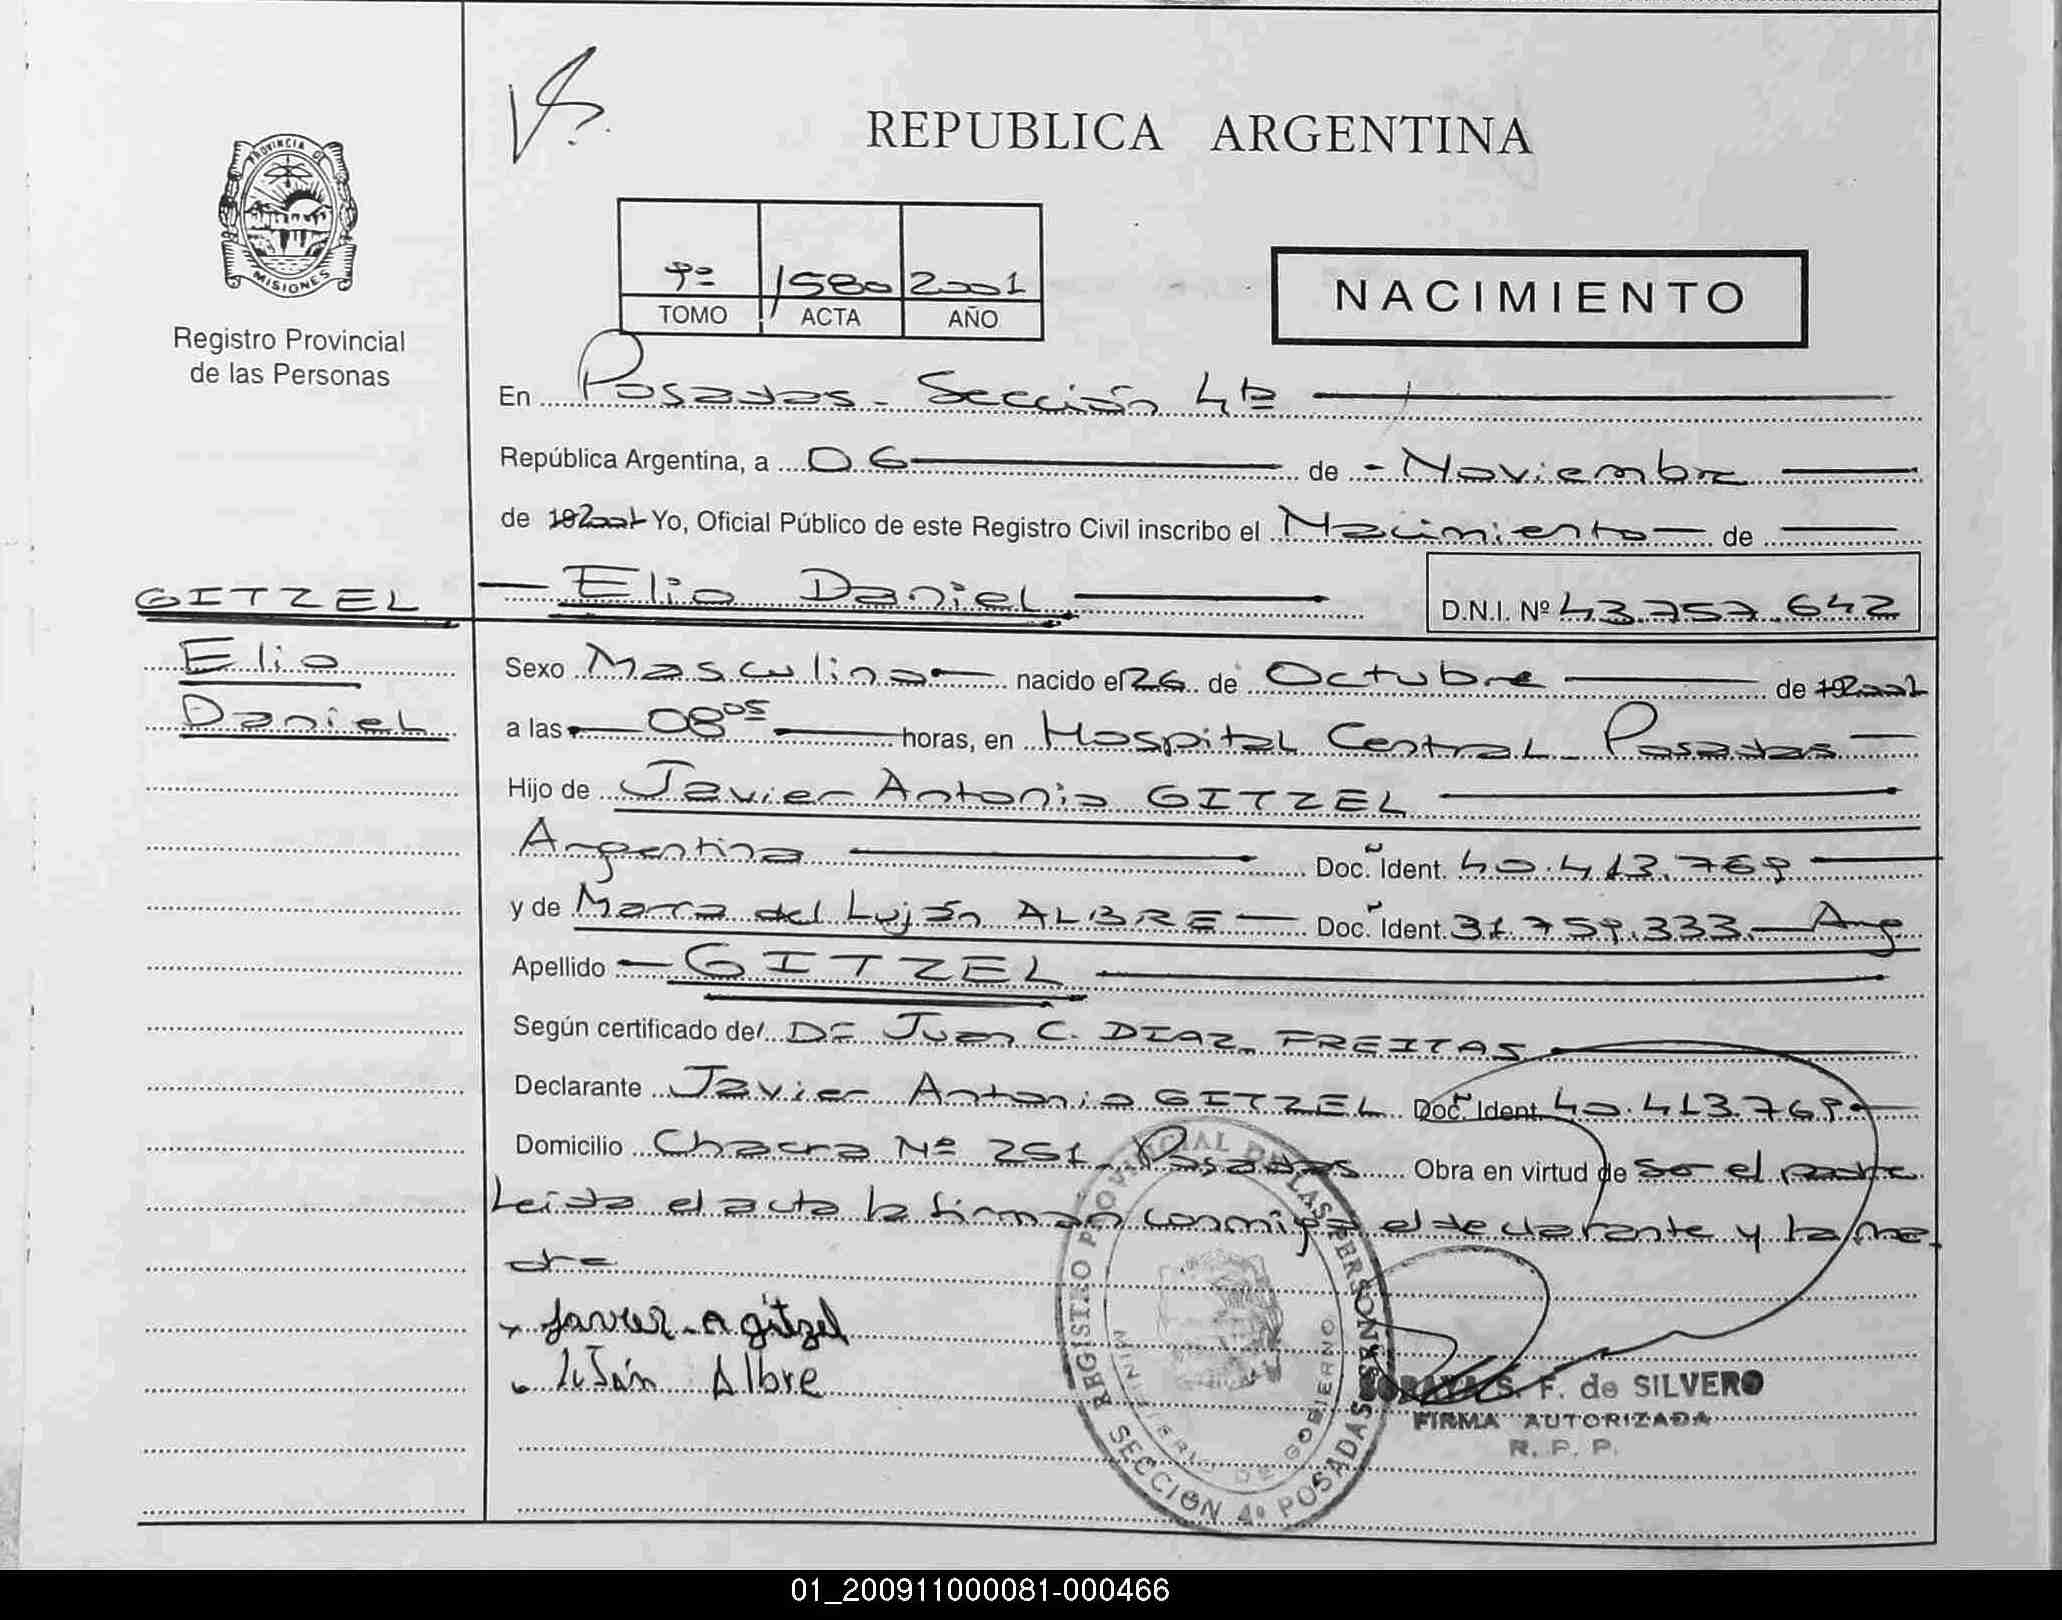 REPUBLICA ARGENTINA
PROVINCIA DE
MISIONES
Registro Provincial
de las Personas
1580 2001
TOMO ACTA AÑO
NACIMIENTO
En Posadas - Sección 4ta
República Argentina, a 06 de - Noviembre
de 2001 Yo, Oficial Público de este Registro Civil inscribo el Nacimiento de
GITZEL
Elio
Daniel
Elio Daniel
D.N.I. Nº 43.757.642
Sexo Masculino nacido el 26 de Octubre de 2001
a las 08 05 horas, en Hospital Central - Posadas
Hijo de Javier Antonio GITZEL
Argentino Doc. Ident. 40.413.769
y de María del Luján ALBRE Doc. Ident. 31.759.333.- Arg
Apellido GITZEL
Según certificado del Dr Juan C. DIAZ FREITAS
Declarante Javier Antonio GITZEL Doc. Ident. 40.413.769
Domicilio Chacra Nº 251 - Posadas Obra en virtud de Ser el padre
Leida el acta la firman conmigo el declarante y la ma
dre
Javier A gitzel
luján Albre
REGISTRO PROVINCIAL DE LAS PERSONAS
MINISTERIO DE GOBIERNO
SECCION 4º POSADAS
S. F. de SILVERO
FIRMA AUTORIZADA
R. P. P.
01_200911000081-000466